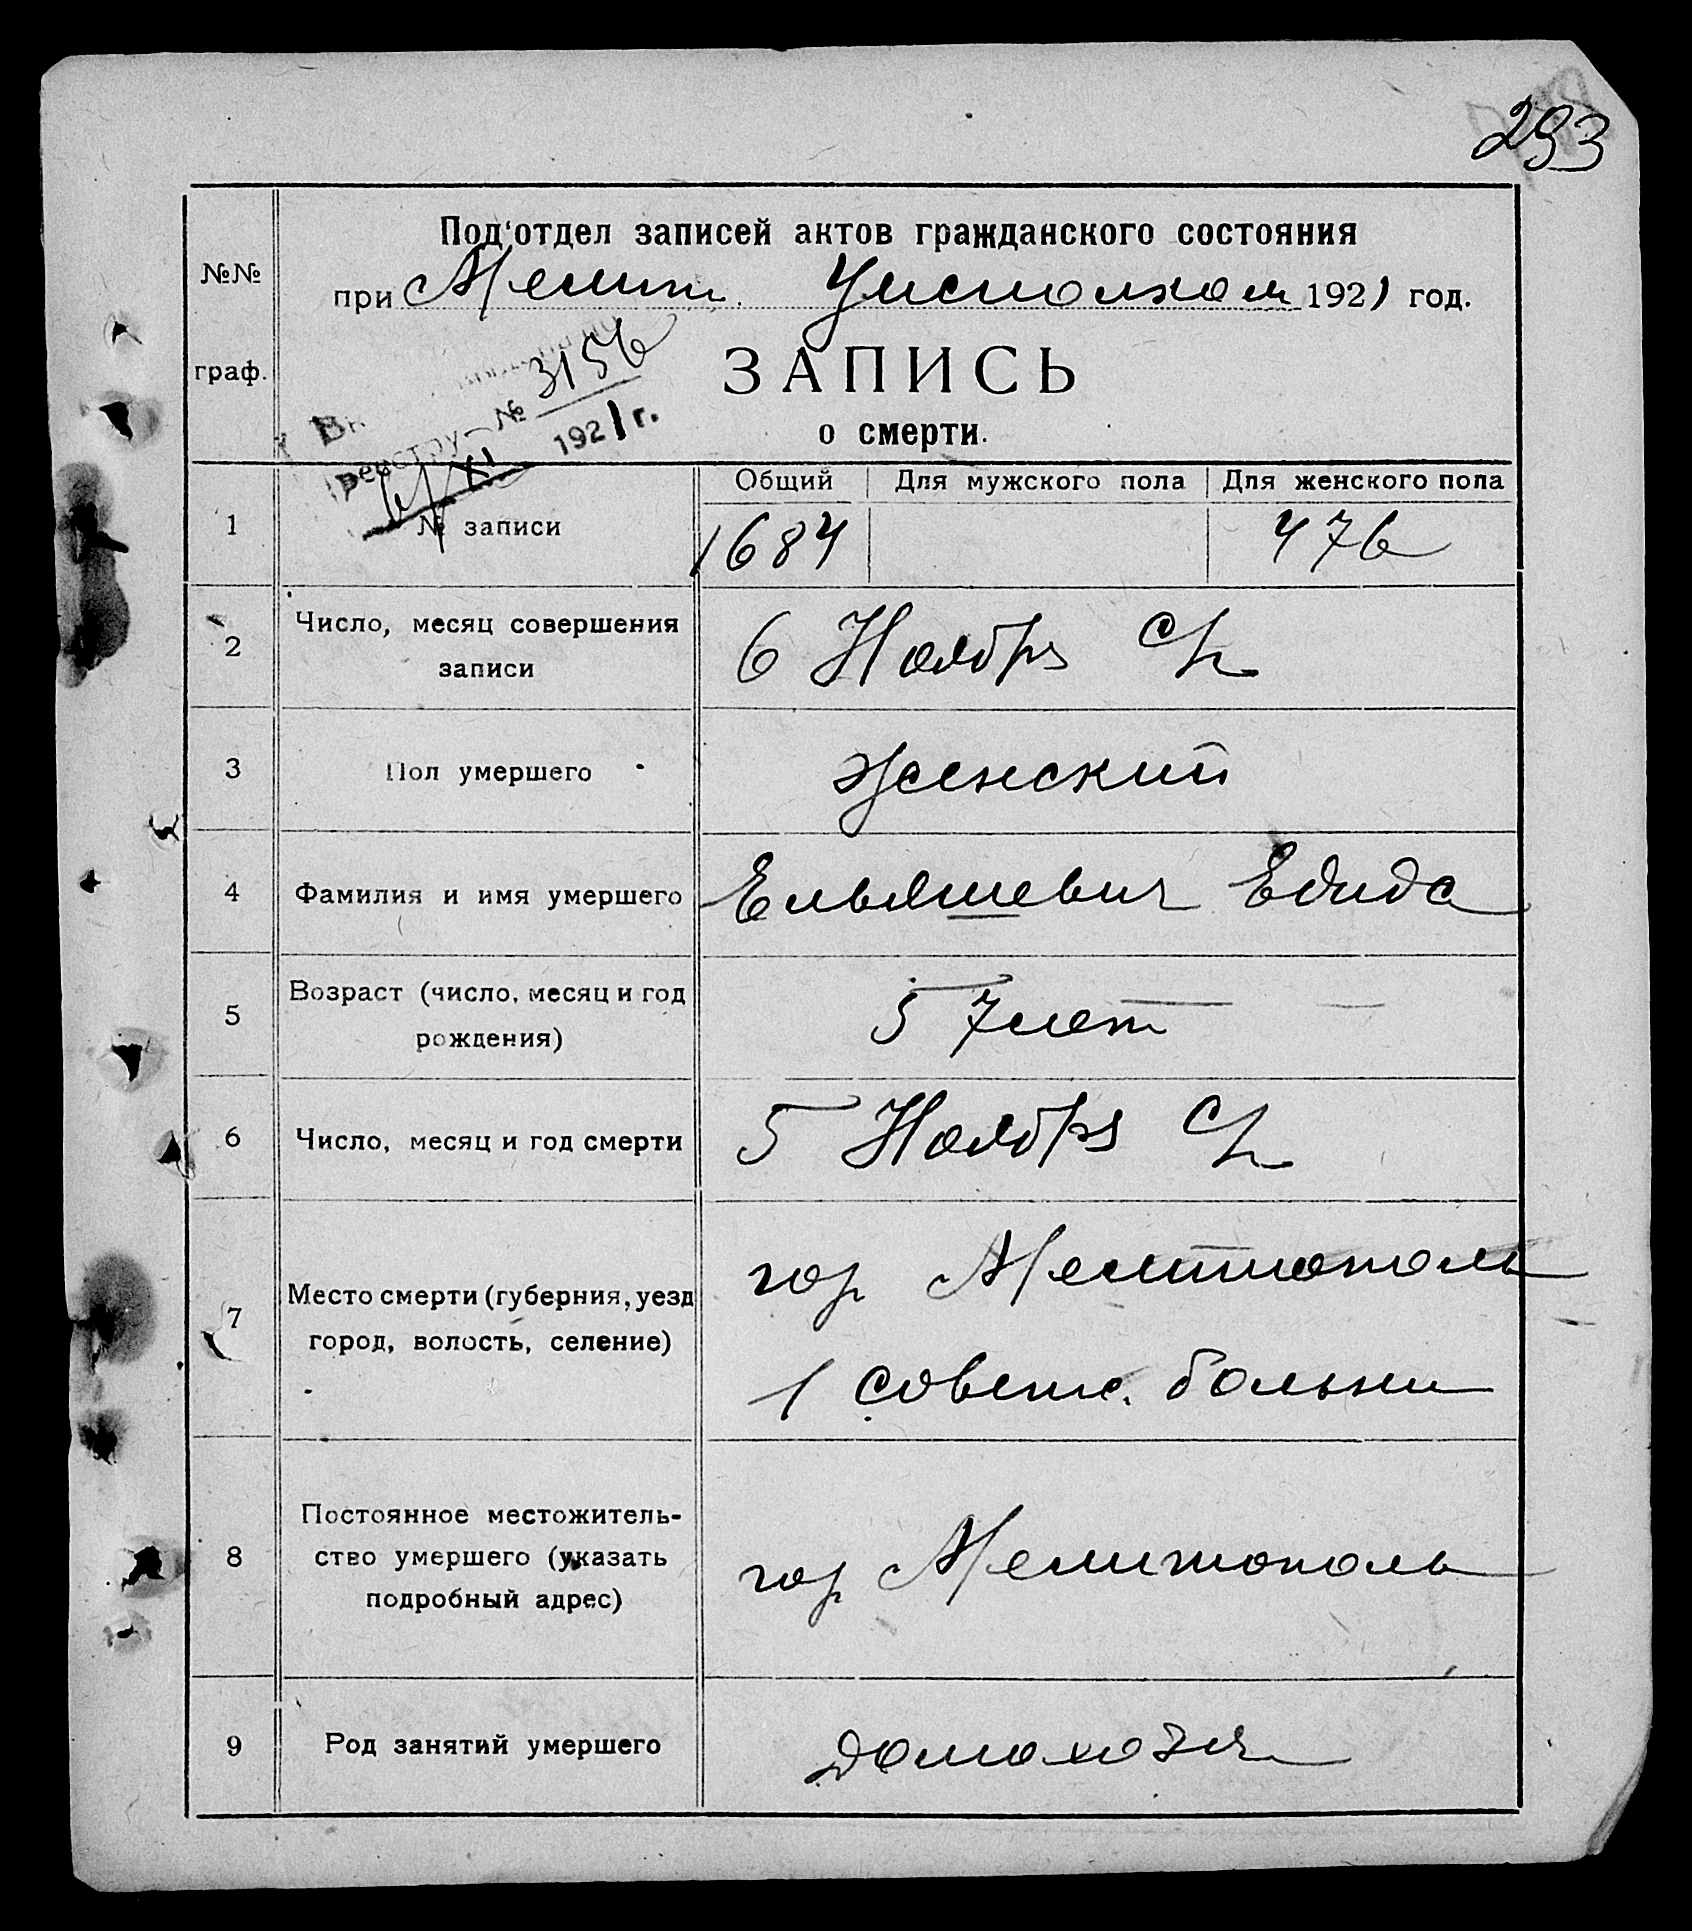 293
№№
граф.
Под‘отдел записей актов гражданского состояния
при Мелит. Уисполком 1921 год.
№ 3156
реестру
1921 г.
ЗАПИСЬ
о смерти.
Общий Для мужского пола Для женского пола
1 № записи 1684 476
2 Число, месяц совершения
записи
6 Ноября с/г
3 Пол умершего женский
4 Фамилия и имя умершего Ельяшевич
5 Возраст (число, месяц и год
рождения)
57 лет
6 Число, месяц и год смерти 5 Ноября с/г
7 Место смерти (губерния, уезд
город, волость, селение)
гор Мелитополь
1 советс. больни
8 Постоянное местожитель-
ство умершего (указать
подробный адрес)
гор Мелитополь
9 Род занятий умершего домохозя